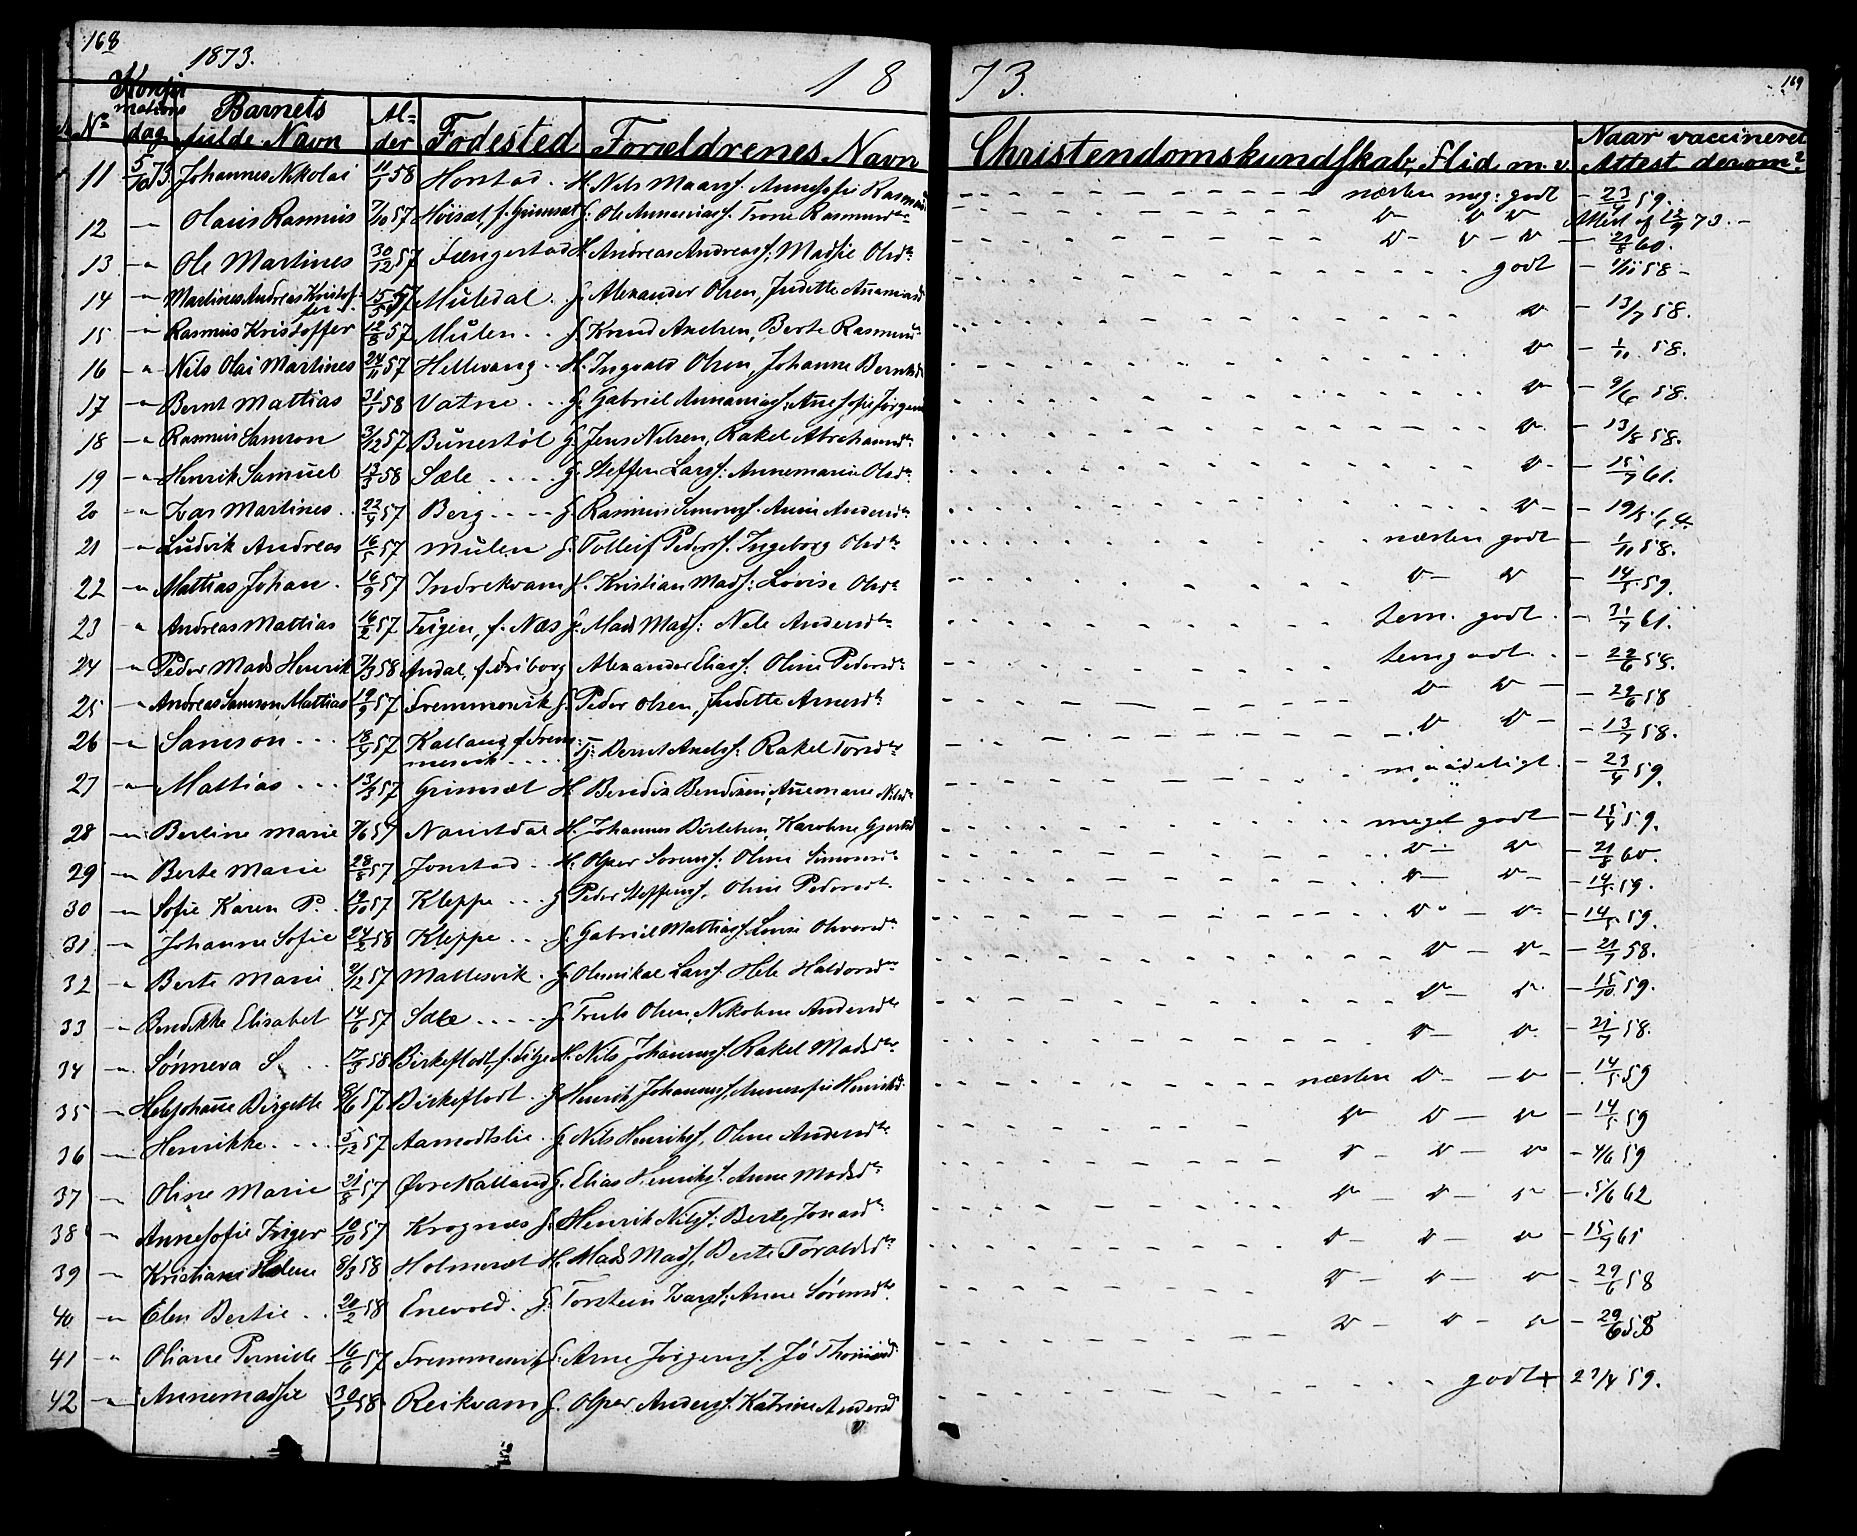 168
1873.
18 73.
169
No Konfirmations dag Barnets fulde Navn Alder Fødested Forældrenes Navn Christendomskundskab, Flid m. v. Naar vaccineret Attest derom?
11 5/10 73. Johannes Nikolai 11/1 58 Horstad. H. Nils Maass. Annesofie Rasmusd - næsten meg: godt - 23/4 59.
12 -"- Olaus Rasmus 7/10 57 Høisæt, f. Grimsæt G. Ole Ananiass. Trone Rasmusdtr v v v Attest af 12/9 73. -
13 -"- Ole Martines 30/12 57 Fængestad H. Andreas Andreass; Madsie Olsdtr v - v - v - 21/8 60.
14 -"- Martines Andreas Kristoffer 15/5 57 Muledal. G. Alexander Olsen, Judette Ananiasd godt - 1/11 58 -
15 -"- Rasmus Kristoffer 12/8 57 Mulen. G. Knud Andsen, Berte Rasmusd v - 13/7 58.
16 -"- Nils Olai Martines 24/11 57 Hellevang. H. Ingvald Olsen, Johanne Berntsd v - 1/11 58.
17 -"- Bernt Mattias 31/1 58 Vatne. G. Gabriel Ananiass; Annesofie Jørgensd v - 9/6 58.
18 -"- Rasmus Samson 31/12 57 Bunestøl G. Jens Nilsen, Rakel Abrahamsdtr v - 13/8 58.
19 -"- Henrik Samuel 13/3 58 Sæle G. Steffen Larss: Annemarie Olsdtr v - 15/7 61.
20 -"- Lars Martines 22/9 57 Berg G. Rasmus Simonss. Anne Andersdtr v - 19/5 64.
21 -"- Ludvik Andreas 16/5 57 Mulen G. Tolleif Peders. Ingeborg Olsdtr næsten godt - 1/11 58.
22 -"- Mattias Johan 16/9 57 Indrekvam H. Kristian Mads: Lovise Olsdtr v - v - 14/5 59.
23 -"- Andreas Mattias 16/2 57 Teigen, f. Næs G. Mads Mads: Nele Andersdtr tem. godt. - 31/7 61.
24 -"- Peder Mads Henrik 7/3 58 Andal, f. Friborg Alexander Eliass. Oline Pedersdtr temgodt. - 22/6 58.
25 -"- Andreas Samson Mattias 19/9 57 Fremmervik G. Peder Olsen, Judette Arnesdt v - v - 22/6 58
26 -"- Samson 18/9 57 Kalland, f. Fremmervik G: Bernt Anders: Rakel Torsdtr v v - 13/7 58.
27 -"- Mattias 13/3 57 Grimsæt H. Bendix Bendixen, Annemarie Nilsdtr maadeligt - 23/4 59.
28 -"- Berline Marie 7/6 57 Naustdal H. Johannes Bertelsen, Karoline Gjertsd meget godt - 15/9 59.
29 -"- Berte Marie 28/8 57 Jonstad H. Olper Sørens: Oline Simonsdtr v - v - 21/8 60.
30 -"- Sofie Karen P. 19/10 57 Kleppe G. Peder Steffens, Oline Pedersdt. v - v - 14/5 59.
31 -"- Johanne Sofie 24/2 58 Kleppe G. Gabriel Mattias. Lovise Oliversd v - v - 14/5 59.
32 -"- Berte Marie 9/12 57 Mattesvik. G. Olemikal Larss. Hele Haldorsdtr v - v - 21/7 58.
33 -"- Bendikke Elisabet 14/6 57 Sæle G. Truls Olsen, Nikoline Andersdtr v - v - 15/10 59.
34 -"- Sønneva S. 17/3 58 Birkeflodt, f. Felje H. Nils Johanness. Rakel Madsdtr v - v - 21/7 58.
35 -"- Helejohanne Birgette 8/6 57 Birkeflodt G. Henrik Johanness, Annesofie Henriksd næsten v - v - 14/5 59
36 -"- Henrikke 5/12 57 Aamodtslie G. Nils Henriks, Oline Andersdtr v v - v - 14/5 59
37 -"- Oline Marie 21/8 57 Øvre Kalland G. Elias Henriks. Anne Madsdtr v - v - v - 4/6 59
38 -"- Annesofie Inger 10/10 57 Krognæs G. Henrik Nils; Berte Jonasdtr v - v - v - 5/6 62
39 -"- Kristiane Helene 8/3 58 Holmesæt H. Mads Mads, Berte Toraldsdtr v - v - v - 15/9 61
40 -"- Elen Bertie 20/2 58 Enevold. G. Torstein Larss; Anne Sørensdtr v - v - v - 29/6 58
41 -"- Oliane Pernille 16/6 57 Fremmervik G. Arne Jørgens. Jø Thomasd v - v - v - 29/6 58
42 -"- Annemadsie 30/1 58 Reikvam G. Olper Anders. Katrine Andersd godt + 23/4 59.